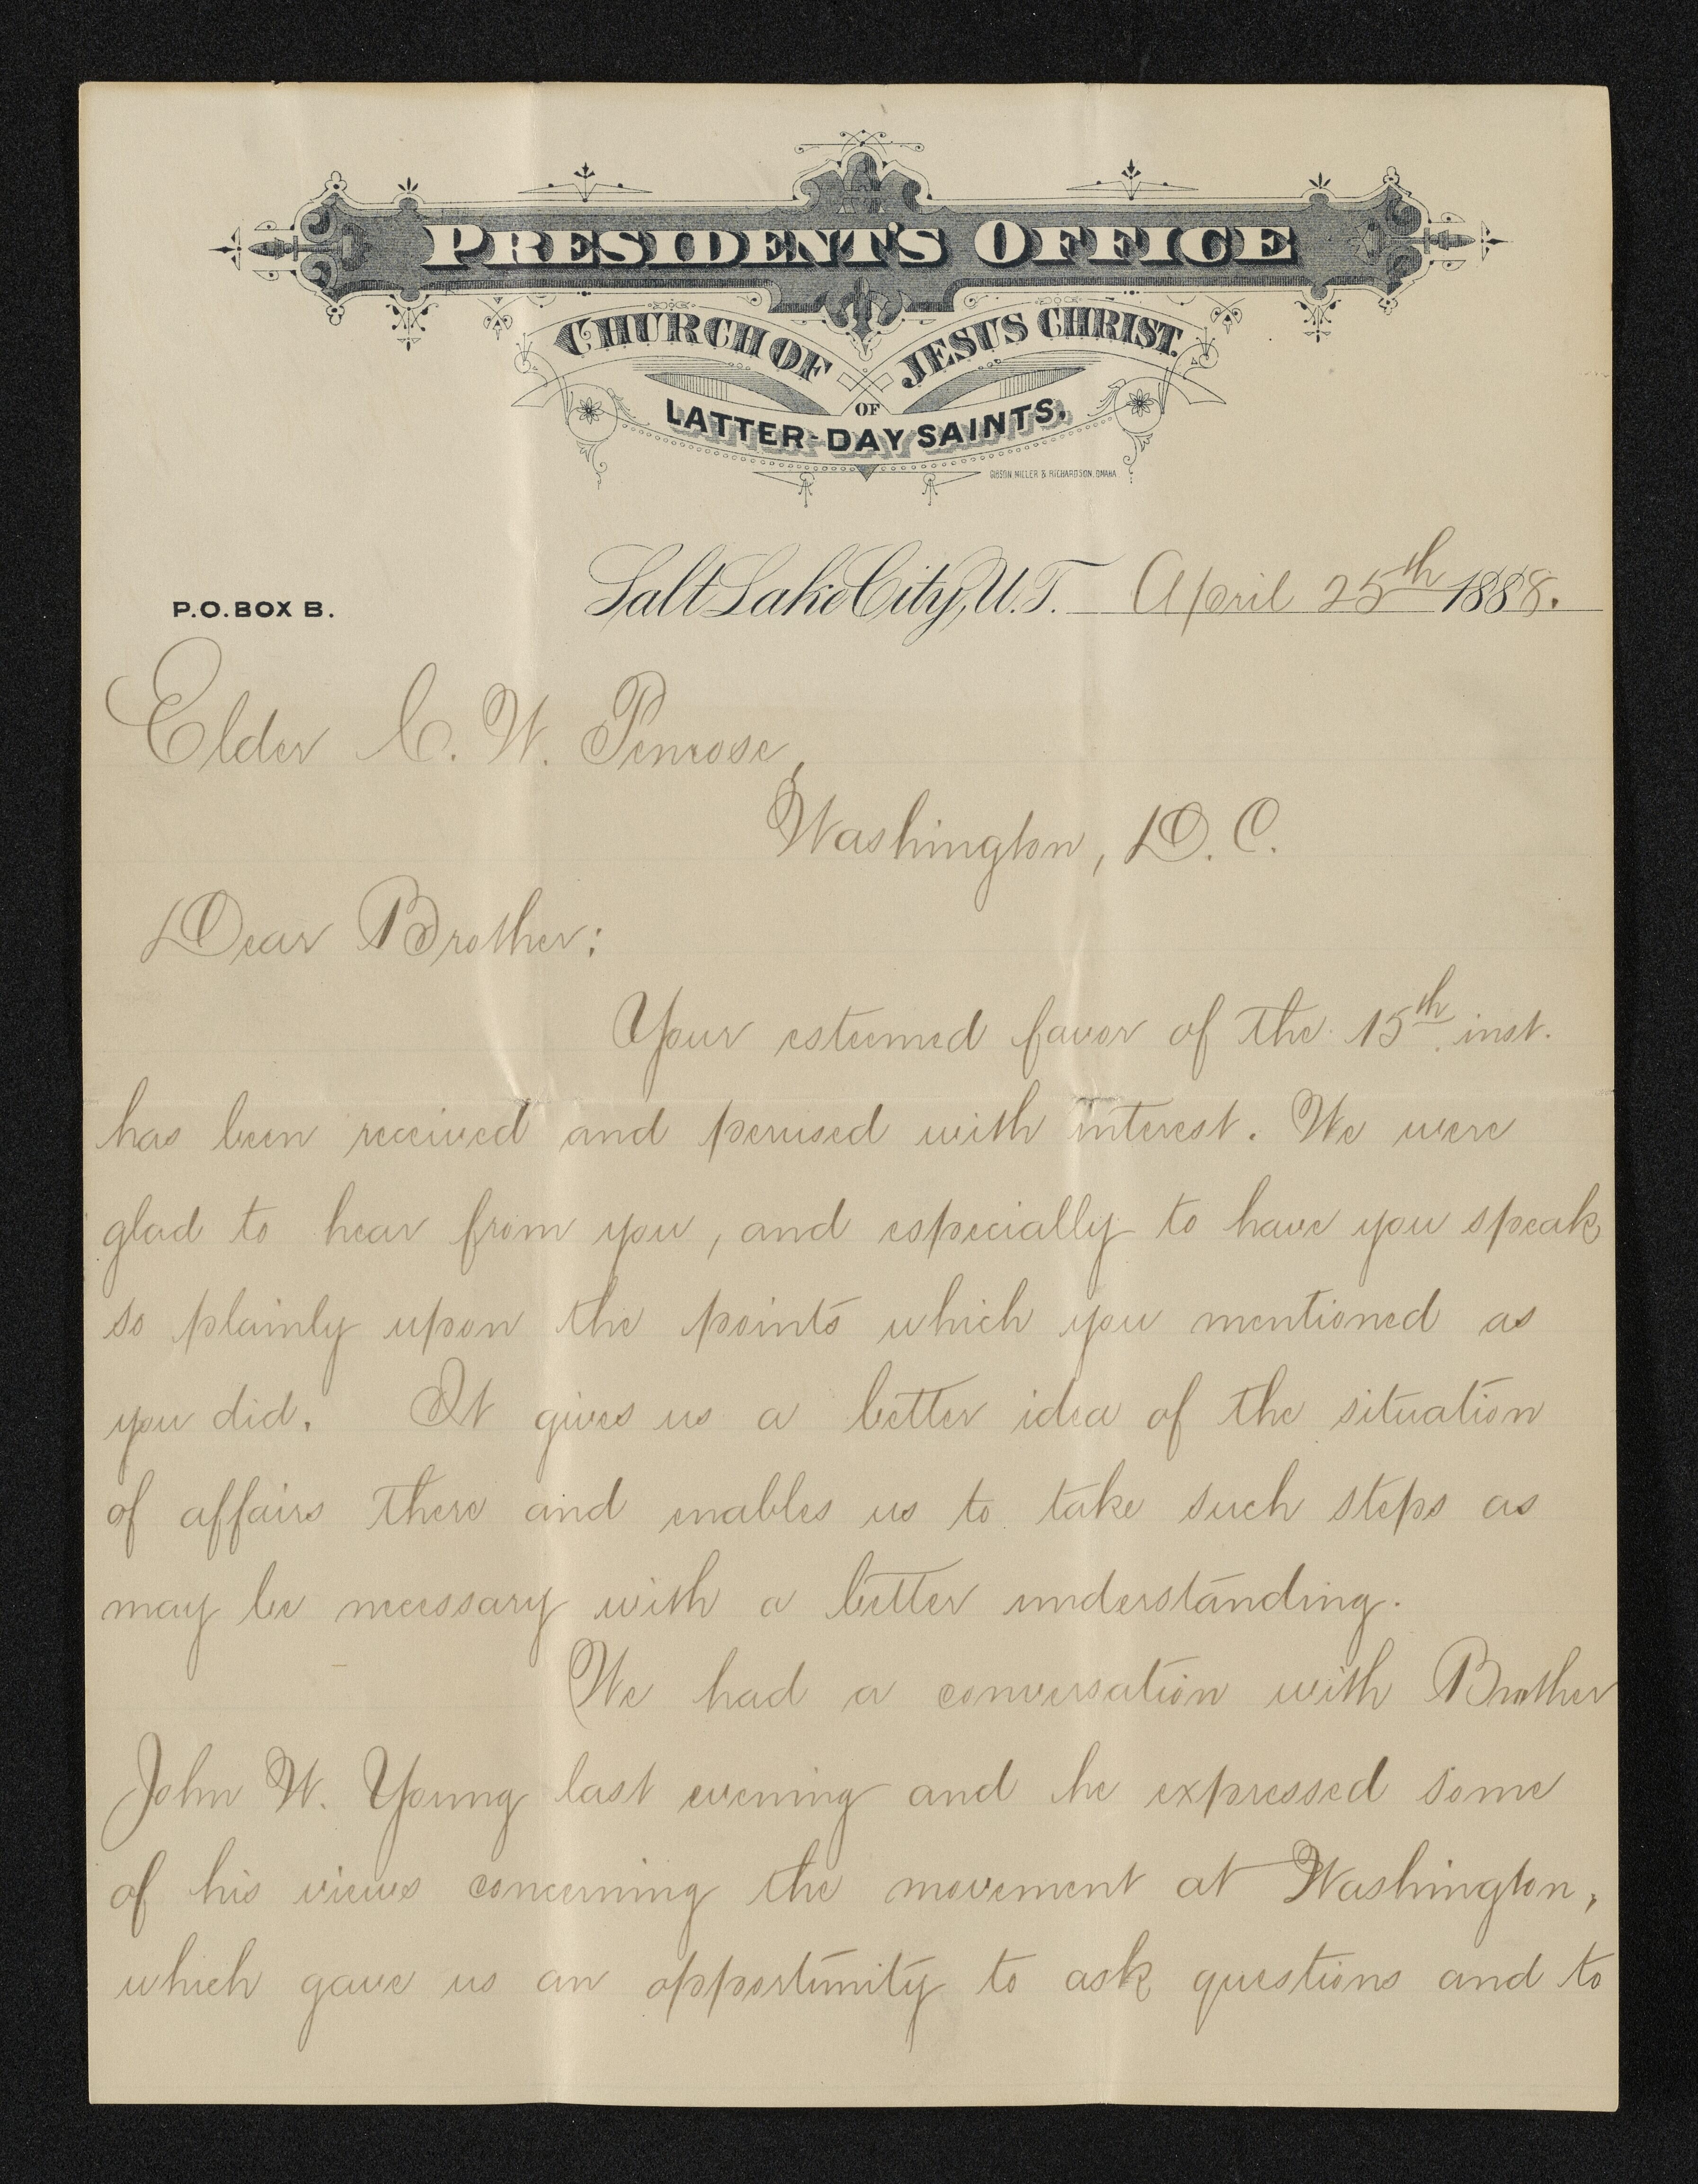 PRESIDENT'S OFFICE
CHURCH OF JESUS CHRIST.
OF
LATTER-DAY SAINTS.
GIBSON MILLER & RICHARDSON, OMAHA
P.O. BOX B.
Salt Lake City, U.T. April 25th 1888.
Elder C. W. Penrose,
Washington, D. C.
Dear Brother:
Your esteemed favor of the 15th inst.
has been received and perused with interest. We were
glad to hear from you, and especially to have you speak
so plainly upon the points which you mentioned as
you did. It gives us a better idea of the situation
of affairs there and enables us to take such steps as
may be necessary with a better understanding.
We had a conversation with Brother
John W. Young last evening and he expressed some
of his views concerning the movement at Washington,
which gave us an opportunity to ask questions and to